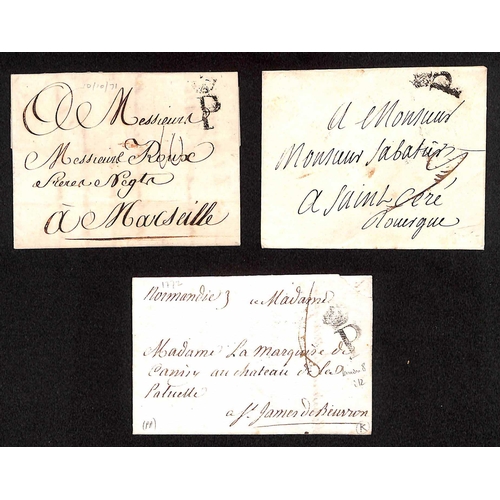 10/10/71
P
A Messieurs
Messieurs Roux
à Marseille
P
A Monsieur
Monsieur Sabatier
A Saint Ceré
Rouergue
Normandie 3 a Madame
P
Madame La Marquise de
Canisy au chateau de La
Paluelle
a St. James de Beuvron
K